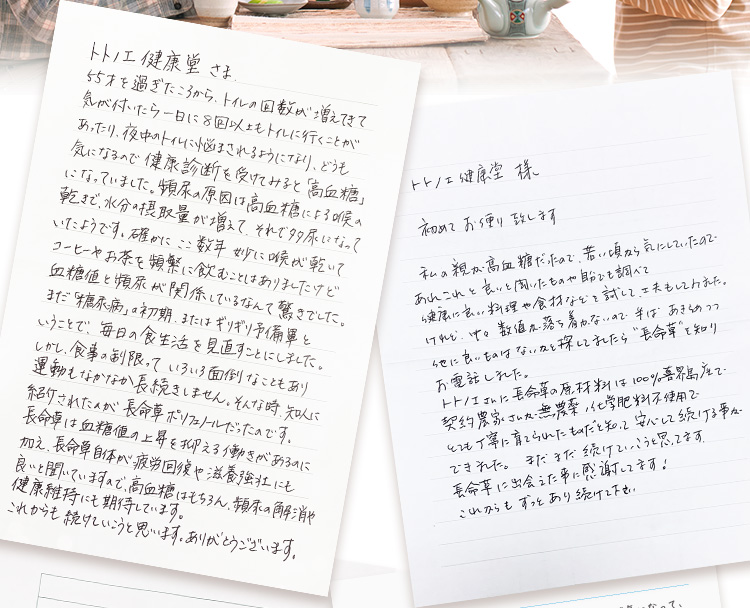 トトノエ健康堂 さま
55才を過ぎたころから、トイレの回数が増えてきて
気が付いたら一日に8回以上もトイレに行くことが
あったり、夜中のトイレに悩まされるようになり、どうも
気になるので健康診断を受けてみると「高血糖」
になっていました。頻尿の原因は高血糖による喉の
乾きで、水分の摂取量が増えて、それで多尿になって
いたようです。確かにここ数年 妙に喉が乾いて
コーヒーやお茶を頻繁に飲むことはありましたけど
血糖値と頻尿が関係しているなんて驚きでした。
まだ"糖尿病"の初期、またはギリギリ予備軍と
いうことで、毎日の食生活を見直すことにしました。
しかし、食事の制限っていろいろ面倒なこともあり
運動もなかなか長続きしません。そんな時、知人に
紹介されたのが長命草ポリフェノールだったのです。
長命草は血糖値の上昇を抑える働きがあるのに
加え、長命草自体が疲労回復や滋養強壮にも
良いと聞いていますので、高血糖はもちろん、頻尿の解消や
健康維持にも期待しています。
これからも続けていこうと思います。ありがとうございます。
トトノエ健康堂 様
初めてお便り致します
私の親が高血糖だったので、若い頃から気にしていたので
あれこれと良いと聞いたものや自分でも調べて
健康に良い料理や食材などを試して、工夫もしてみました。
けれど、中々数値が落ち着かないので半ばあきらめつつ
他に良いものはないかと探してましたら"長命草"を知り
お電話しました。
トトノエさんに長命草の原材料は100%喜界島産で
契約農家さんが無農薬、化学肥料不使用で
とても丁寧に育てられたものだと知って安心して続ける事が
できました。まだまだ続けていこうと思ってます。
長命草に出会えた事に感謝してます!
これからもずっとあり続けて下さい